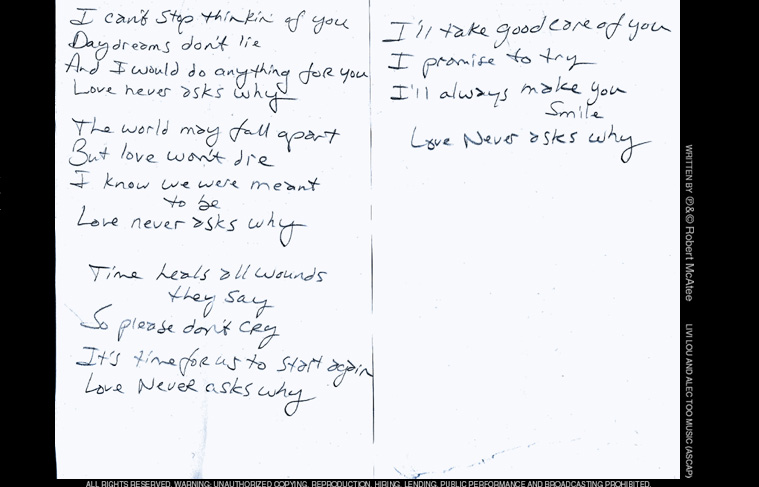 I can't stop thinkin of you
Daydreams don't lie
And I would do anything for you
Love never asks why
The world may fall apart
But love won't die
I know we were meant
to be
Love never asks why
Time heals all wounds
they say
So please don't cry
It's time for us to start again
Love Never asks why
I'll take good care of you
I promise to try
I'll always make you
Smile
Love Never asks why
WRITTEN BY ℗&© Robert McAtee
LIVI LOU AND ALEC TOO MUSIC (ASCAP)
ALL RIGHTS RESERVED. WARNING: UNAUTHORIZED COPYING, REPRODUCTION, HIRING, LENDING, PUBLIC PERFORMANCE AND BROADCASTING PROHIBITED.